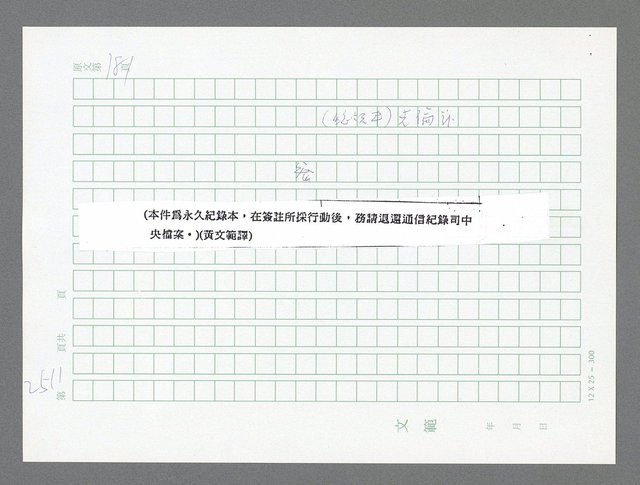 原文第184頁
(本件爲永久紀錄本，在簽註所採行動後，務請退還通信紀錄司中
央檔案。)(黃文範譯)
第2511頁共 頁
12 X 25 = 300
文範
年 月 日